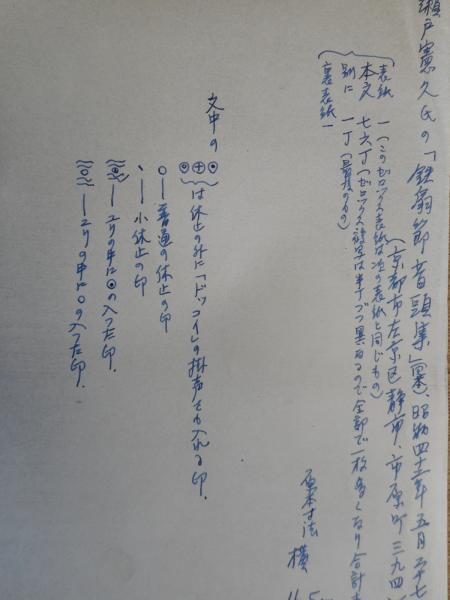 瀬戸憲久氏の「鉄扇節音頭集」(写本)、昭和四十三年五月二十七
(京都市左京区静市、市原町三九四
表紙 一(このゼロックス表紙は次の表紙と同じもの)
本文 七六丁(ゼロックス複写は半丁づつ異るので全部で一枚多くなり合計
別に 一丁(最後のもの)
裏表紙 一
原本寸法
横
文中の
は休止の外に「ドッコイ」の掛声をも入れる印.
○—普通の休止の印
、—小休止の印
—ユリの中に◉の入った印.
—ユリの中に○の入った印.